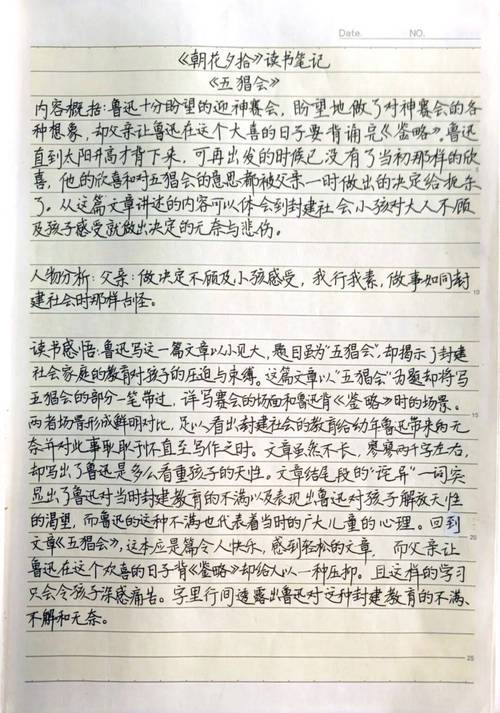 Date. NO.
《朝花夕拾》读书笔记
《五猖会》
内容概括:鲁迅十分盼望的迎神赛会,盼望地做了对神赛会的各
种想象,却父亲让鲁迅在这个大喜的日子要背诵完《鉴略》。鲁迅
直到太阳升高才背下来,可再出发的时候已没有了当初那样的欣
喜,他的欣喜和对五猖会的意思都被父亲一时做出的决定给扼杀
了。从这篇文章讲述的内容可以体会到封建社会小孩对大人不顾
及孩子感受就做出决定的无奈与悲伤。
人物分析:父亲:做决定不顾及小孩感受,我行我素,做事如同封
10
建社会时那样古怪。
读书感悟:鲁迅写这一篇文章以小见大,题目虽为“五猖会”,却揭示了封建
社会家庭的教育对孩子的压迫与束缚。这篇文章以“五猖会”为题却将写
五猖会的部分一笔带过,详写赛会的场面和鲁迅背《鉴略》时的场景。
两者场景形成鲜明对比,足以看出封建社会的教育给幼年鲁迅带来的无
奈并对此事耿耿于怀直至写作之时。文章虽然不长,寥寥两千字左右,
却写出了鲁迅是多么看重孩子的天性。文章结尾段的“诧异”一词突
显出了鲁迅对当时封建教育的不满以及表现出鲁迅对孩子解放天性
的渴望,而鲁迅的这种不满也代表着当时的广大儿童的心理。回到
20
文章《五猖会》,这本应是篇令人快乐,感到轻松的文章,而父亲让
鲁迅在这个欢喜的日子背《鉴略》却给人以一种压抑。且这样的学习
只会令孩子深感痛苦。字里行间透露出鲁迅对这种封建教育的不满、
不解和无奈。
25